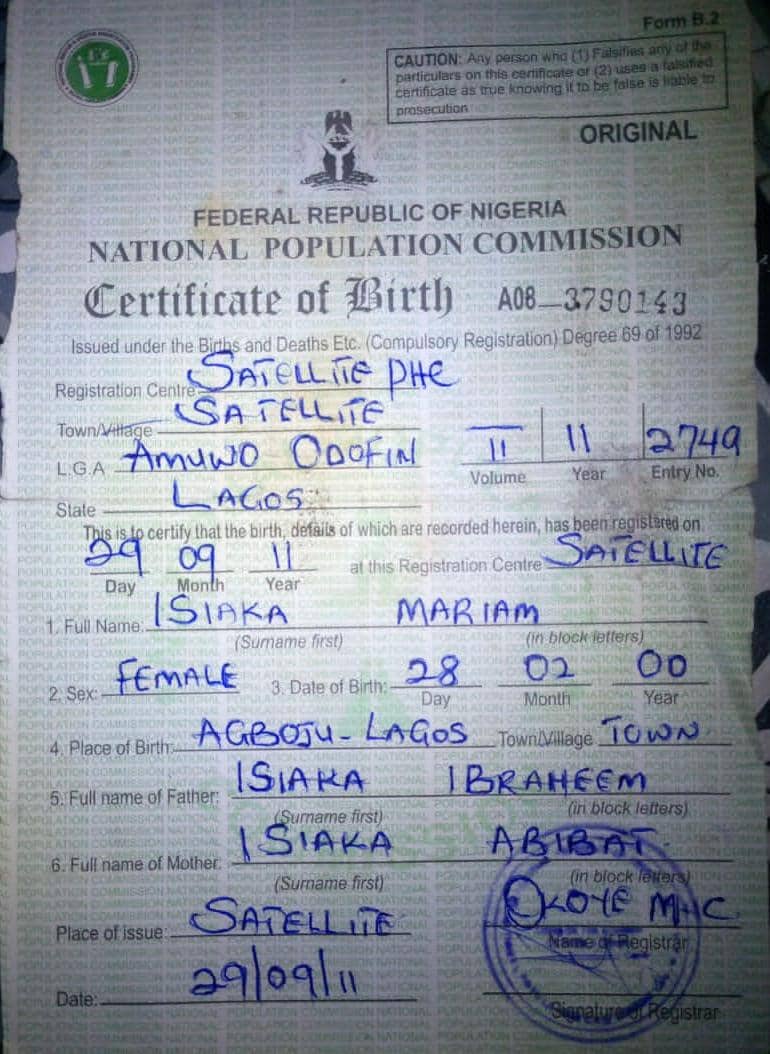 Form B.2
CAUTION: Any person who (1) Falsifies any of the
particulars on this certificate or (2) uses a falsified
certificate as true knowing it to be false is liable to
prosecution
ORIGINAL
FEDERAL REPUBLIC OF NIGERIA
NATIONAL POPULATION COMMISSION
Certificate of Birth A08-3790143
Issued under the Births and Deaths Etc. (Compulsory Registration) Degree 69 of 1992
Registration Centre SATELLITE PHC
Town/Village SATELLITE
L.G.A AMUWO ODOFIN II 11 2749
Volume Year Entry No.
State LAGOS
This is to certify that the birth, details of which are recorded herein, has been registered on
29 09 11 at this Registration Centre SATELLITE
Day Month Year
1. Full Name: ISIAKA MARIAM
(Surname first) (in block letters)
2. Sex: FEMALE 3. Date of Birth: 28 02 00
Day Month Year
4. Place of Birth: AGBOJU-LAGOS Town/Village TOWN
5. Full name of Father: ISIAKA IBRAHEEM
(Surname first) (in block letters)
6. Full name of Mother: ISIAKA ABIBAT
(Surname first) (in block letters)
Place of issue: SATELLITE OKOYE M.H.C
Name of Registrar
Date: 29/09/11
Signature of Registrar